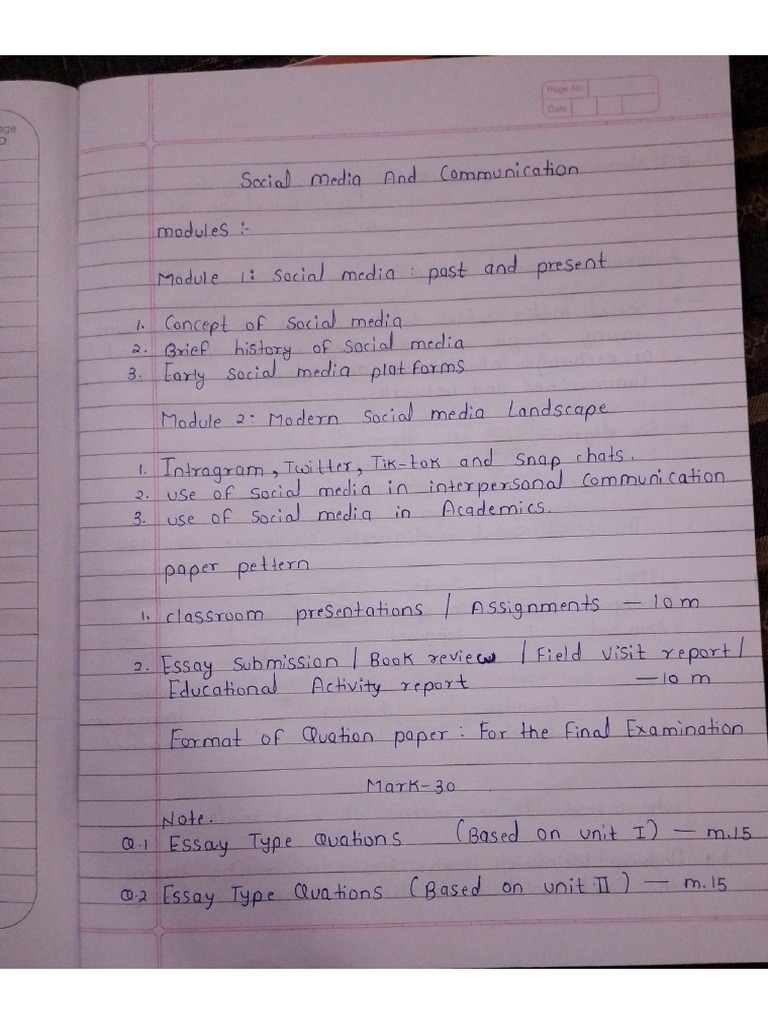 age
Page No.
Date
Social media And Communication
modules :-
Module 1: Social media : past and present
1. Concept of Social media
2. Brief history of Social media
3. Early Social media plat forms
Module 2: Modern Social media Landscape
1. Intragram, Twitter, Tik-tok and snap chats.
2. use of social media in interpersonal communication
3. use of social media in Academics.
paper pettern
1. classroom presentations / Assignments - 10 m
2. Essay Submission / Book review / Field visit report /
Educational Activity report - 10 m
Format of Quation paper : For the final Examination
Mark-30
Note.
Q.1 Essay Type Quations (Based on unit I) - m.15
Q.2 Essay Type Quations (Based on unit II) - m.15